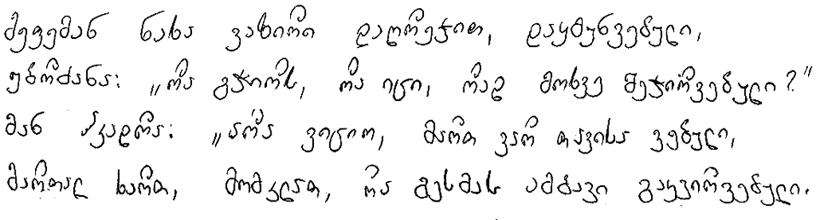 მეფემან ნახა ვაზირი დაღრეჯით, დაყმუნვებული,
უბრძანა: „რა გჭირს, რა იცი, რად მოხვე შეჭირვებული?"
მან ჰკადრა: „არა ვიციო, მართ ვარ თავისა ვებული,
მართალ ხართ, მომკლათ, რა გესმას ამბავი გაკვირვებული.